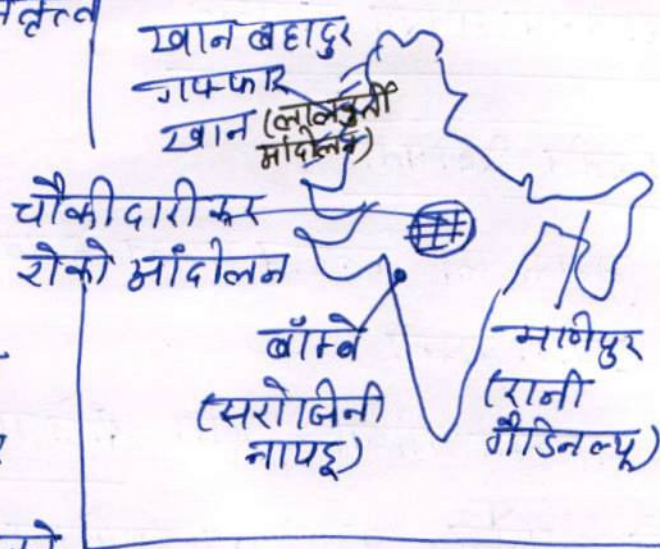 खान बहादुर
गफ्फार
खान (लालकुर्ती
आंदोलन)
चौकीदारी कर
रोको आंदोलन
बॉम्बे
(सरोजिनी
नायडू)
मणिपुर
(रानी
गैडिनल्यू)